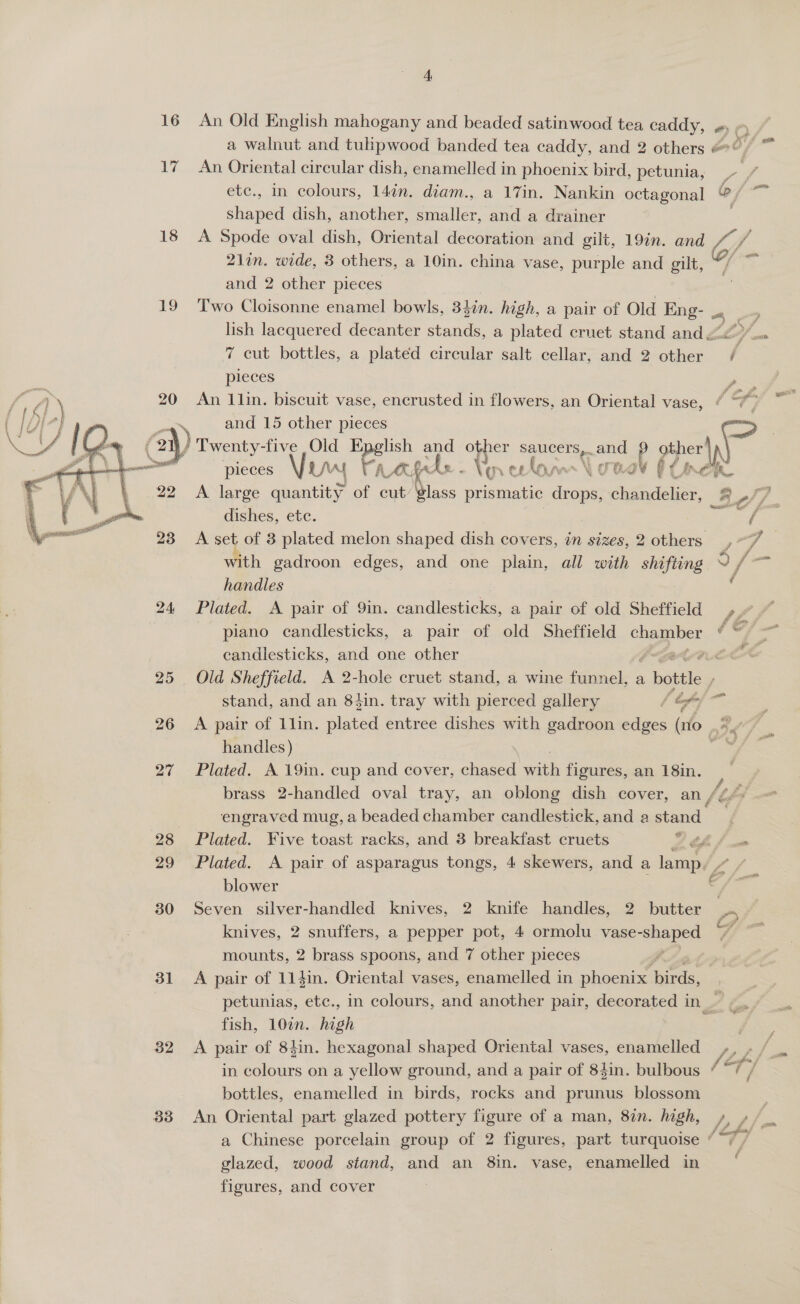 4
16 An Old English mahogany and beaded satinwood tea caddy,
a walnut and tulipwood banded tea caddy, and 2 others
17 An Oriental circular dish, enamelled in phoenix bird, petunia,
etc., in colours, 14in. diam., a 17in. Nankin octagonal
shaped dish, another, smaller, and a drainer
18 A Spode oval dish, Oriental decoration and gilt, 19in. and
21in. wide, 3 others, a 10in. china vase, purple and gilt,
and 2 other pieces
19 Two Cloisonne enamel bowls, 3½in. high, a pair of Old Eng-
lish lacquered decanter stands, a plated cruet stand and
7 cut bottles, a plated circular salt cellar, and 2 other
pieces
20 An 11in. biscuit vase, encrusted in flowers, an Oriental vase,
and 15 other pieces
21 Twenty-five Old English and other saucers, and 9 other
pieces Very
22 A large quantity of cut glass prismatic drops, chandelier,
dishes, etc.
23 A set of 3 plated melon shaped dish covers, in sizes, 2 others
with gadroon edges, and one plain, all with shifting
handles
24 Plated. A pair of 9in. candlesticks, a pair of old Sheffield
piano candlesticks, a pair of old Sheffield chamber
candlesticks, and one other
25 Old Sheffield. A 2-hole cruet stand, a wine funnel, a bottle
stand, and an 8½in. tray with pierced gallery
26 A pair of 11in. plated entree dishes with gadroon edges (no
handles)
27 Plated. A 19in. cup and cover, chased with figures, an 18in.
brass 2-handled oval tray, an oblong dish cover, an
engraved mug, a beaded chamber candlestick, and a stand
28 Plated. Five toast racks, and 3 breakfast cruets
29 Plated. A pair of asparagus tongs, 4 skewers, and a lamp
blower
30 Seven silver-handled knives, 2 knife handles, 2 butter
knives, 2 snuffers, a pepper pot, 4 ormolu vase-shaped
mounts, 2 brass spoons, and 7 other pieces
31 A pair of 11½in. Oriental vases, enamelled in phoenix birds,
petunias, etc., in colours, and another pair, decorated in
fish, 10in. high
32 A pair of 8½in. hexagonal shaped Oriental vases, enamelled
in colours on a yellow ground, and a pair of 8½in. bulbous
bottles, enamelled in birds, rocks and prunus blossom
33 An Oriental part glazed pottery figure of a man, 8in. high,
a Chinese porcelain group of 2 figures, part turquoise
glazed, wood stand, and an 8in. vase, enamelled in
figures, and cover